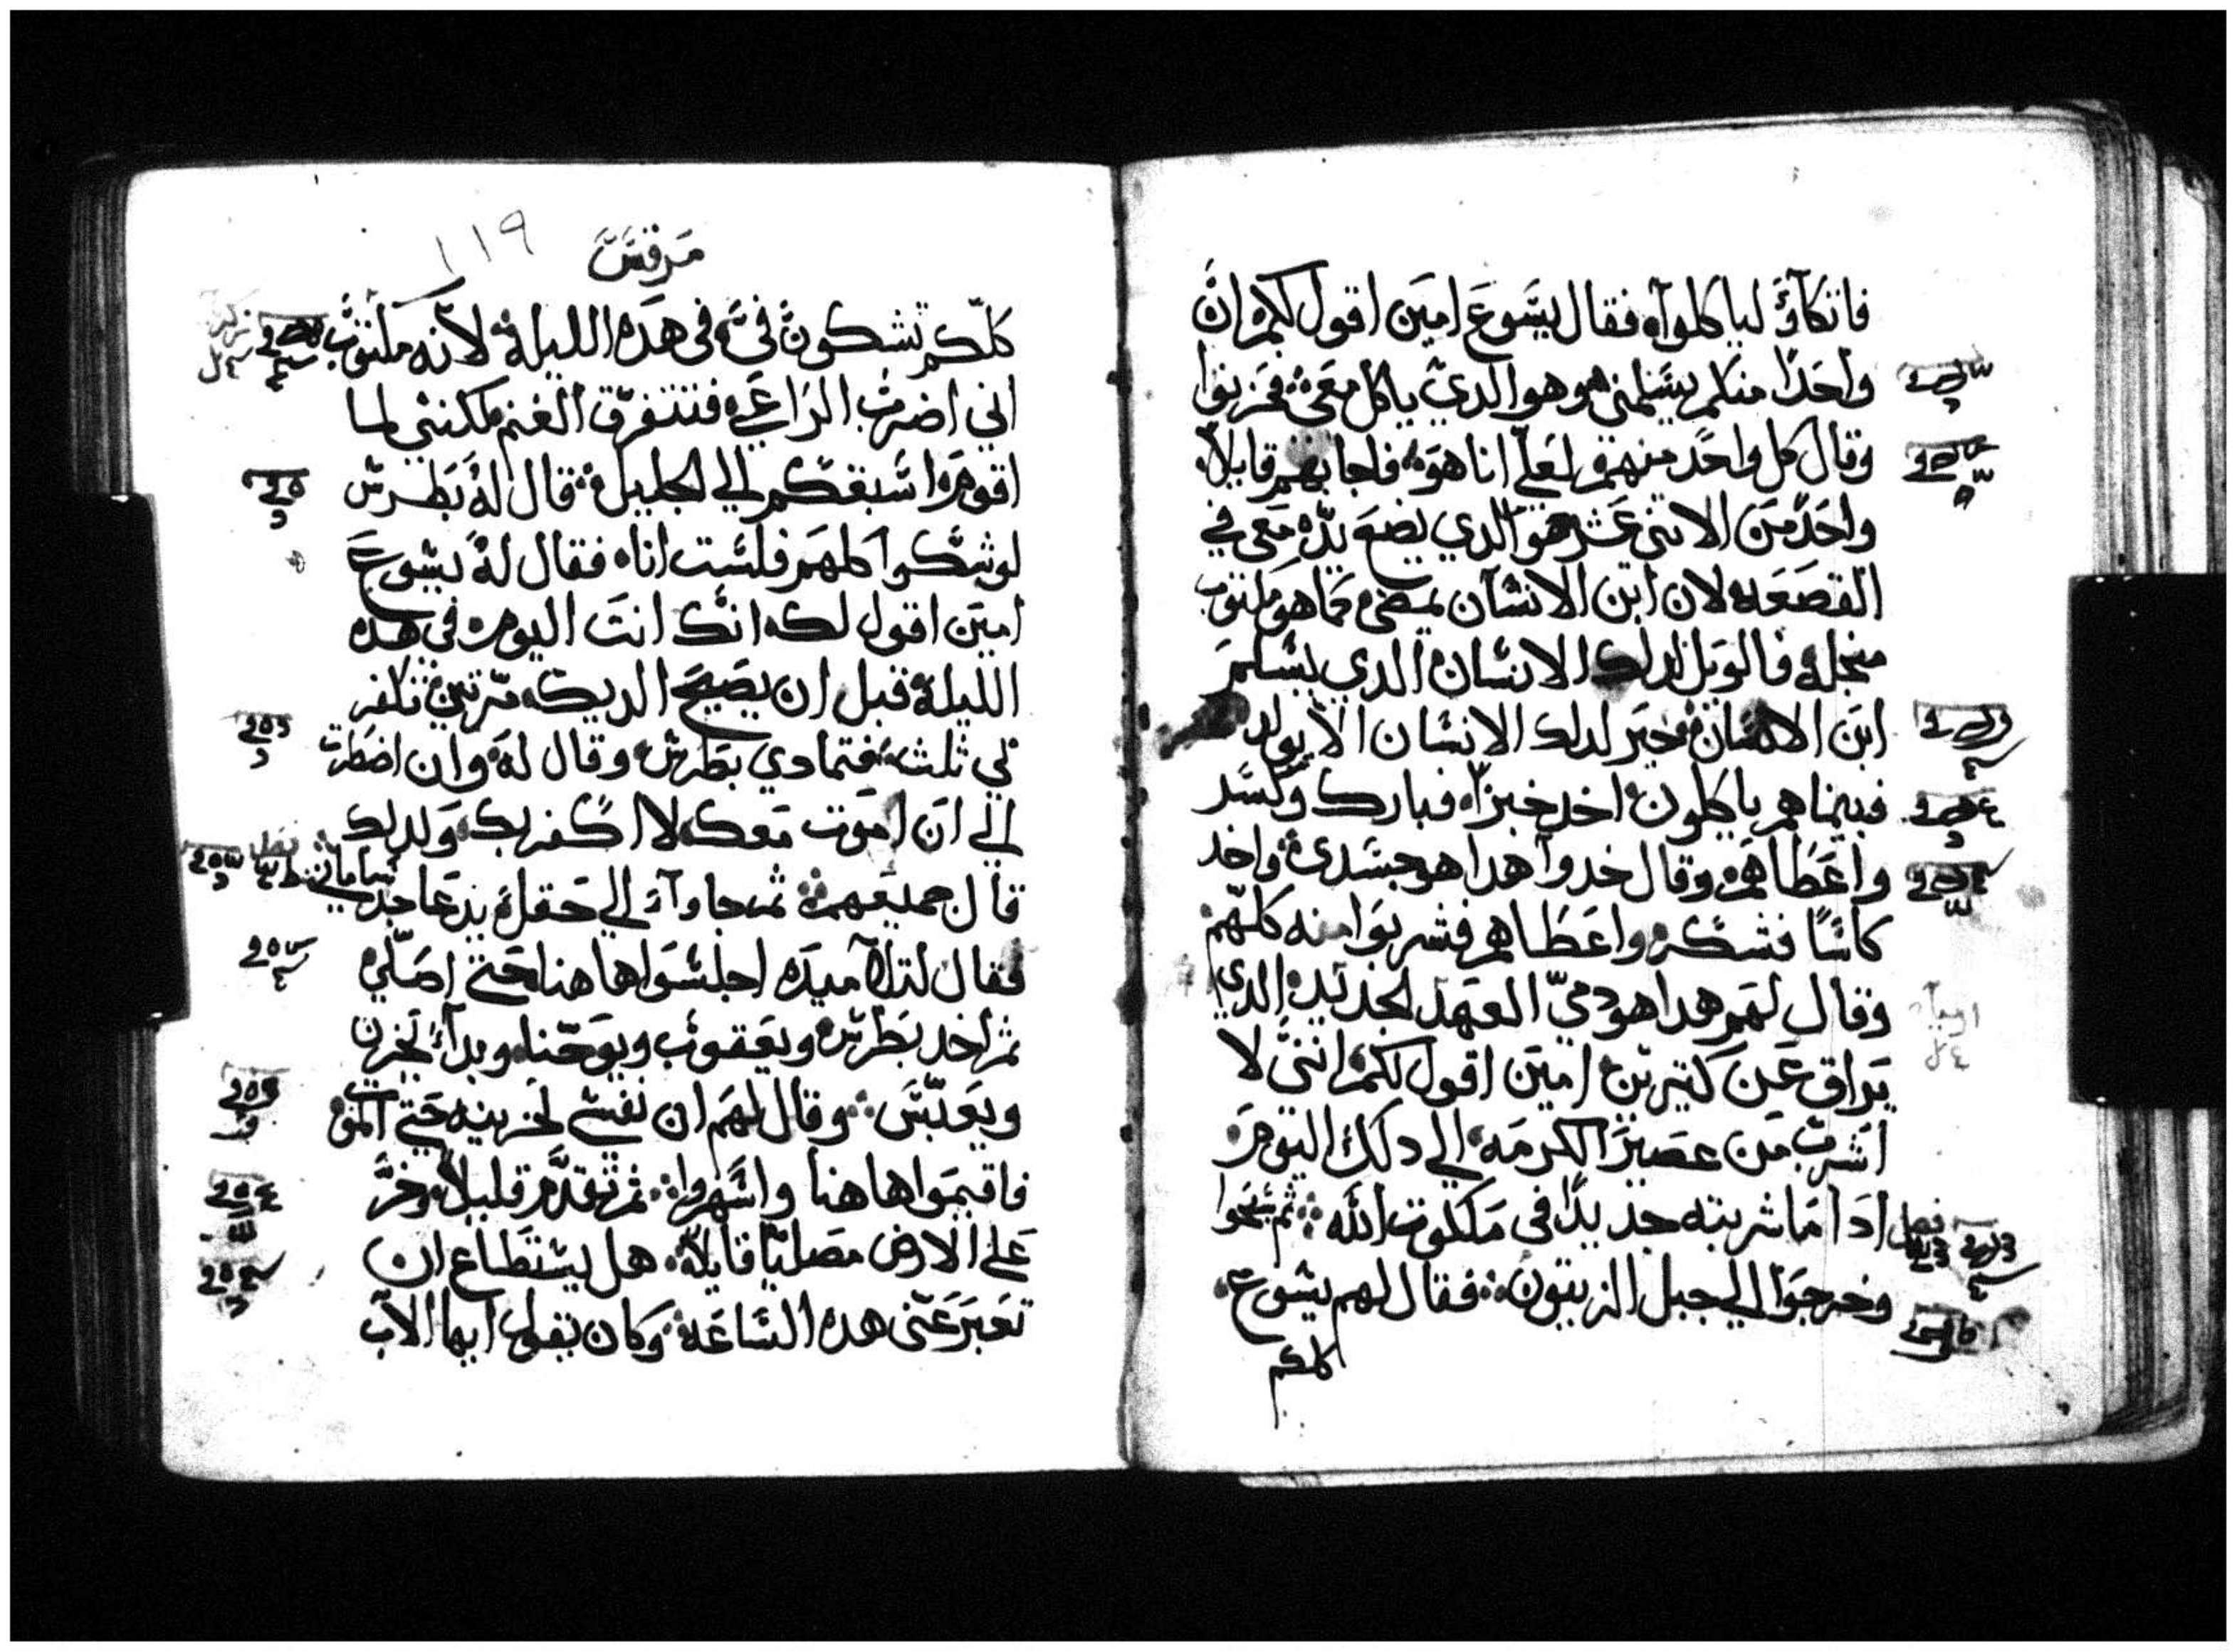 فاتكآوَ لياكلوآ فقال يسَّوعَ امين اقول لكم ان
واحَدًا منكم يسَلمني هو هو الدي ياكل معَي فحَزنوا
وقال كل واحَد منهم لعَلي انا هوَ فاجابهم قايلاً
واحَد من الاتني عَشر هو الدي يضعَ يدَه معَي في
القصَعَه لان ابن الانسَان يمضي كما هو مكتوب
منجله فالويل لدلك الانسَان الدي يسَلم
ابن الانسَان خير لدلك الانسَان الا يولد
فبينما هم ياكلون اخد خبزاً فبارك وكسَر
واعَطَاهم وقال خدوا هدا هو جسَدي واخد
كاسًا فشكر واعَطَاهم فشربوا منه كلهم
وقال لهم هدا هو دميّ العَهد الجديد الدي
يراق عَن كتيرين امين اقول لكم انني لا
اشرب من عصَير الكرمه الي دلك اليوم
ادا ما شربته جديدًا في ملكوت الله ثم سَبحَوا
وخرجَوا الي جبل الزيتون فقال لهم يسَوع
كلكم
مرقسَ
١١٩
كلّكم تشكون فيَّ في هده الليله لانه مكتوب
اني اضرب الراعَي فتتفرّق الغنم لكنني لما
اقوم اسَبقكم الي الجليل قال لهُ بَطرسَ
لو شكوا كلهم فلسَت انا فقال لهُ يسَوعَ
امين اقول لك انك انتَ اليوم في هده
الليله قبل ان يصَيحَ الديك مرّتين تكفر
بي ثلث فتمادي بطرس وقال له وان اضطرت
الي ان اموت معَك لا اكفر بك ولدلك
قال جميعَهم ثم جاوآ الي حَقل يدعَا جدسَامان
فقال لتلاميده اجلسَوا هاهنا حَتي اصَلّي
ثم اخد بَطرسَ ويعَقوب ويوحَنا وبدآ يحَزن
ويعَبّسَ وقال لهم ان نفسَي لحَزينه حَتي الموت
فاقيموا هاهنا واسَهروا ثم تقدَّم قليلاً وخرَّ
عَلي الارض مصَليًا قايلاً هل يسَتطَاع ان
تعَبر عَني هده السَاعَه وكان يقول ايها الاب